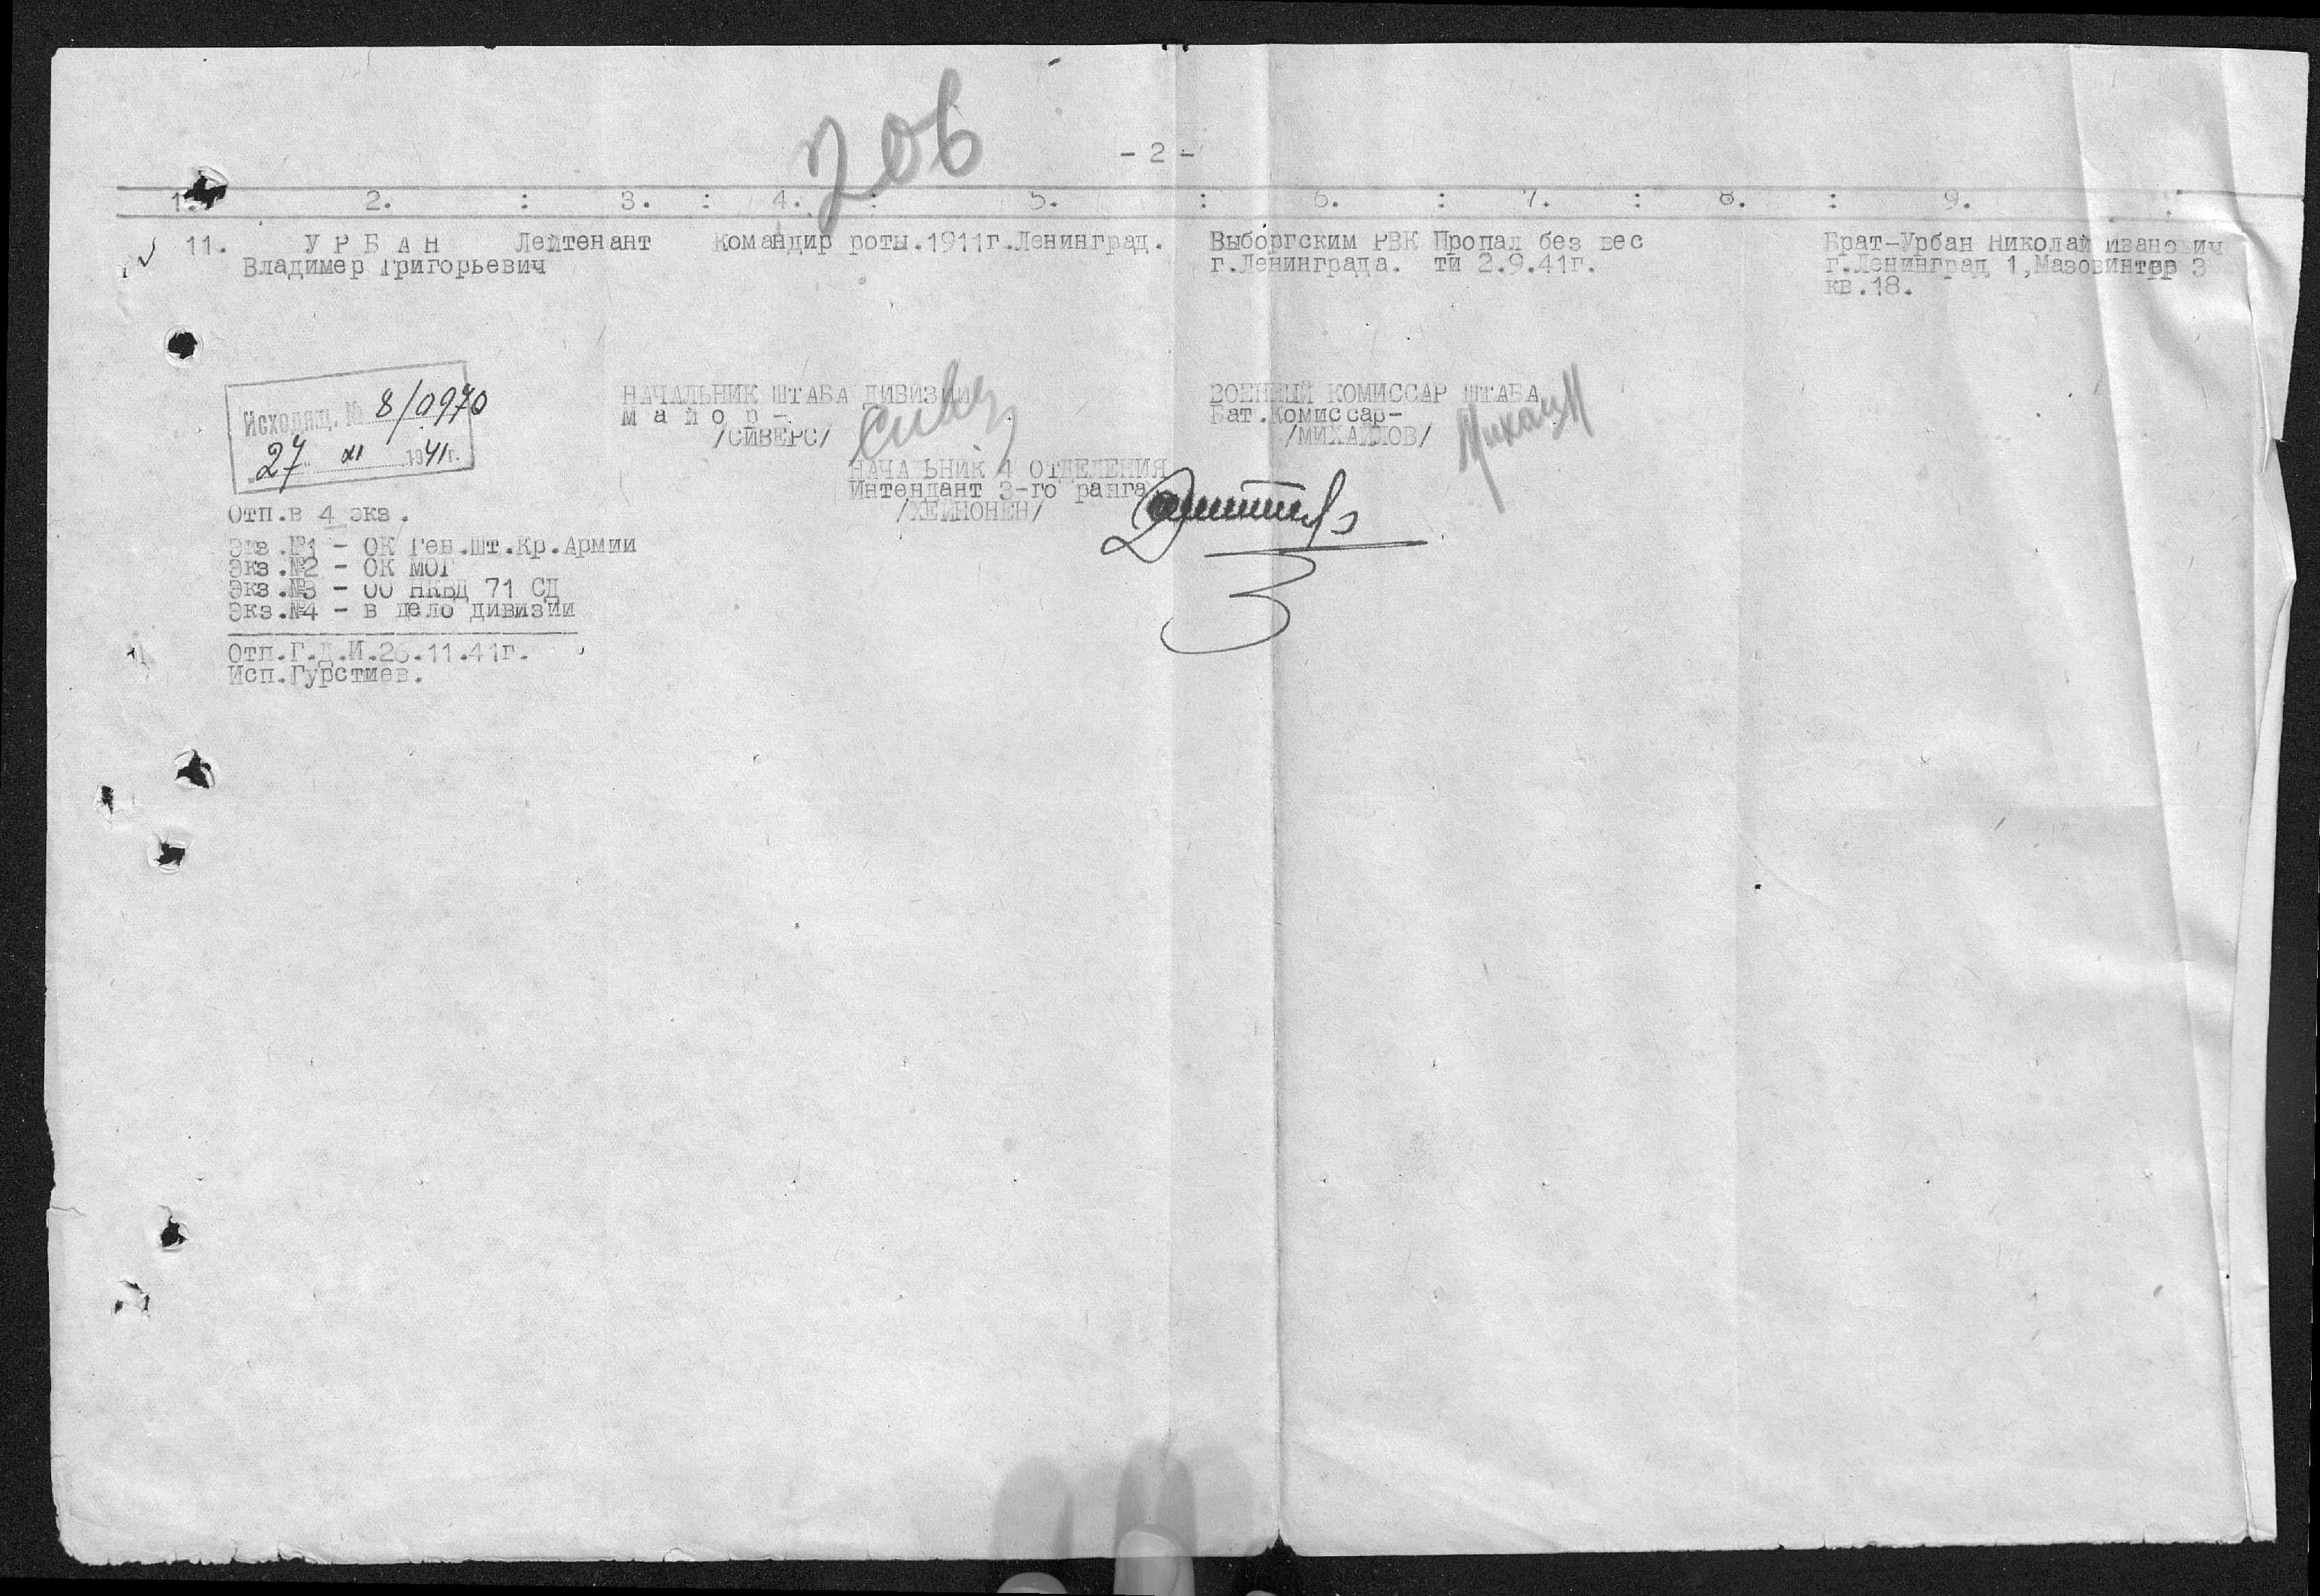 206
- 2 -
1. 2. : 3. : 4. : 5. : 6. : 7. : 8. : 9.
11. УРБАН Лейтенант Командир роты. 1911г.Ленинград. Выборгским РВК Пропал без вес Брат-Урбан Николай Иванович
Владимер Григорьевич г.Ленинграда. ти 2.9.41г. г.Ленинград 1, 3
кв.18.
Исходящ. № 8/0970
"27" XI 1941г.
НАЧАЛЬНИК ШТАБА ДИВИЗИИ
Майор-
/СИВЕРС/
Сиверс
ВОЕННЫЙ КОМИССАР ШТАБА
Бат.Комиссар-
/МИХАЙЛОВ/
НАЧАЛЬНИК 4 ОТДЕЛЕНИЯ
Интендант 3-го ранга
/ХЕЙНОНЕН/
Отп.в 4 экз.
Экз.№1 - ОК Ген.Шт.Кр.Армии
Экз.№2 - ОК МОГ
Экз.№3 - ОО НКВД 71 СД
Экз.№4 - в дело дивизии
Отп.Г.Д.И.26.11.41г.
Исп.Гурстиев.